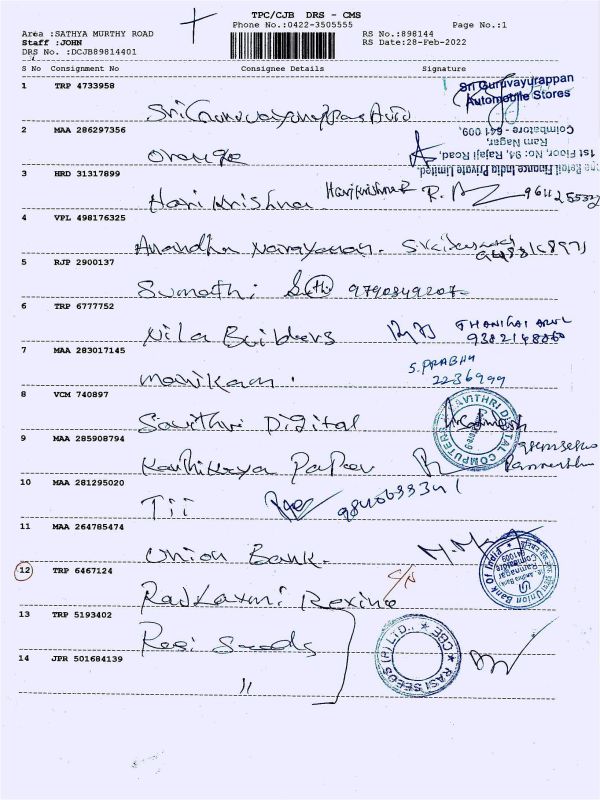 TPC/CJB DRS - CMS
Phone No.:0422-3505555 Page No.:1
Area :SATHYA MURTHY ROAD RS No.:898144
Staff :JOHN RS Date:28-Feb-2022
DRS No. :DCJB89814401
S No Consignment No Consignee Details Signature
1 TRP 4733958
Sri Guruvayurappan
Automobile Stores
Sri Guruvayurappan Auto
2 MAA 286297356
Coimbatore - 641 009,
Ram Nagar,
Orange
1st Floor, No: 94, Rajaji Road,
Retail Finance India Private Limited,
3 HRD 31317899
Hari Krishna Harikrishna
4 VPL 498176325
Anandha Narayanan.
5 RJP 2900137
Sumathi 9790849207
6 TRP 6777752
Nila Builders THANIGAI ARUL
7 MAA 283017145
Manikam. S. PRABHU
2236999
8 VCM 740897
Savithri Digital
SAVITHRI DIGITAL COMPUTER
9 MAA 285908794
Karthikeya Paper
10 MAA 281295020
Tii 9840633341
11 MAA 264785474
Union Bank.
Union Bank Of India
Ramnagar
Coimbatore
641009
12 TRP 6467124
C/N
Rajlaxmi Rexine
13 TRP 5193402
Rasi Seeds
RASI SEEDS (P) LTD., CBE
14 JPR 501684139
"